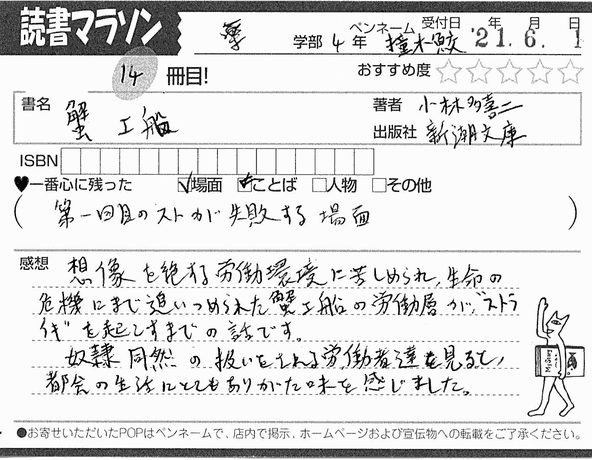 読書マラソン
学部 4年 ペンネーム 撞木鮫 受付日 '21年 6.月 1日
14 冊目! おすすめ度 ☆☆☆☆☆
書名 蟹工船 著者 小林多喜二
出版社 新潮文庫
ISBN
♥一番心に残った ☑場面 ☑ことば □人物 □その他
(第一回目のストが失敗する場面)
感想 想像を絶する労働環境に苦しめられ、生命の
危機にまで追いつめられた蟹工船の労働層が、"ストラ
イキ"を起こすまでの話です。
奴隷同然の扱いをされる労働者達を見ると、
都会の生活にとてもありがた味を感じました。
●お寄せいただいたPOPはペンネームで、店内で掲示、ホームページおよび宣伝物への転載をご了承ください。